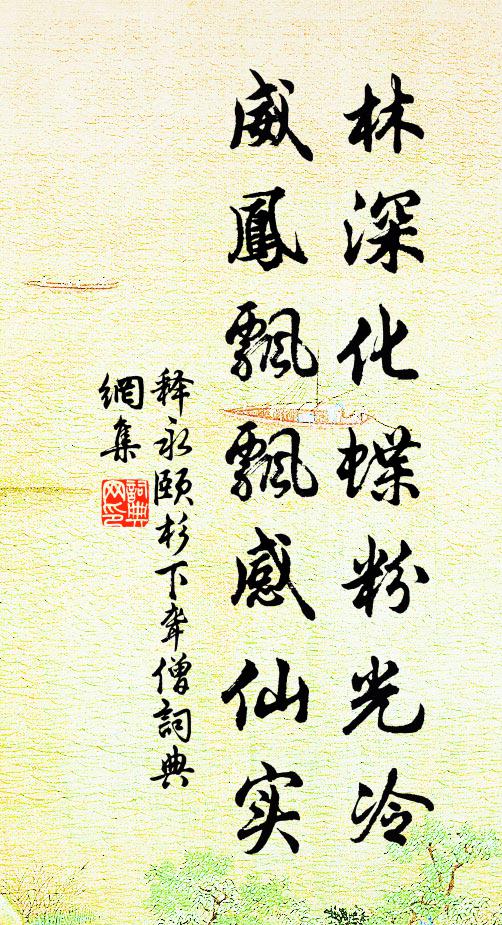 林深化蝶粉光冷
威鳳飄飄感仙实
释永颐杉下聋僧詞典
網集
詞典网印